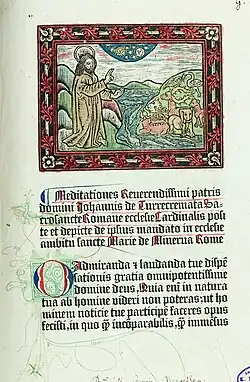 Meditationes Reuerendissimi patris
domini Johannis de Turrecremata Sa
crosancte Romane ecclesie Cardinalis posi
te et depicte de ipsius mandato in ecclesie
ambitu sancte Marie de Minerua Rome
Admiranda ⁊ laudanda tue dispē
sationis gratia omnipotentissime
domine deus, Quia eni in natura
tua ab homine videri non poteras: ut ho
minem noticie tue participē faceres opus
fecisti, in quo ꝙ̄ incōparabilis, ꝙ̄ immēsus